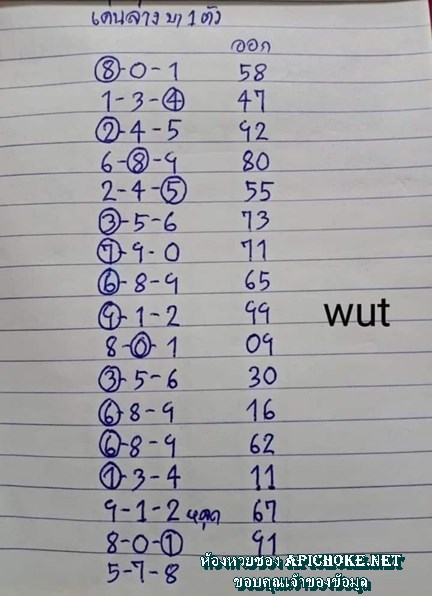 เด่นล่าง มา 1 ตัว
ออก
8-0-1 58
1-3-4 47
2-4-5 92
6-8-9 80
2-4-5 55
3-5-6 73
7-9-0 71
6-8-9 65
9-1-2 99
wut
8-0-1 09
3-5-6 30
6-8-9 16
6-8-9 62
1-3-4 11
9-1-2 หลุด 67
8-0-1 91
5-7-8
ห้องหวยซอง APICHOKE.NET
ขอบคุณเจ้าของข้อมูล